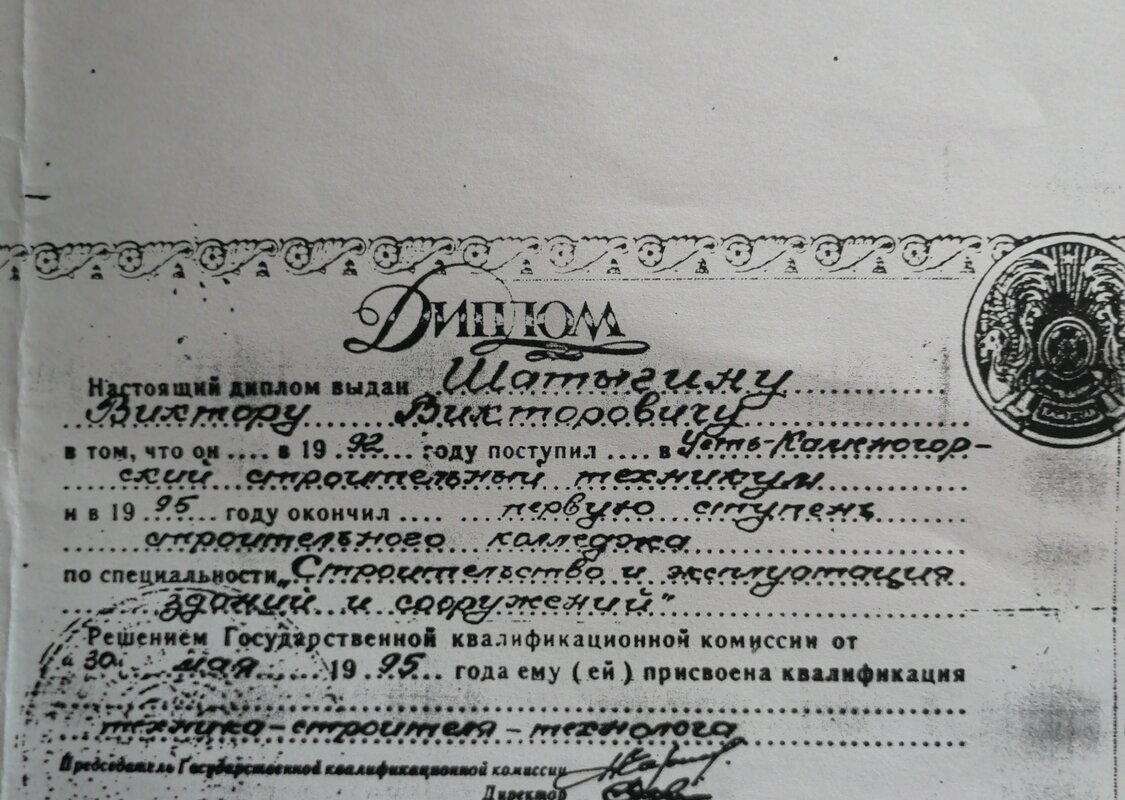 Диплом
Настоящий диплом выдан Шатыгину
Виктору Викторовичу
в том, что он .... в 19 92 году поступил .... в Усть-Каменогор-
ский строительный техникум
и в 19 95 году окончил .... первую ступень
строительного колледжа
по специальности „Строительство и эксплуатация
зданий и сооружений"
Решением Государственной квалификационной комиссии от
" 30 мая 19 95 года ему ( ей ) присвоена квалификация
техника-строителя-технолога
Председатель Государственной квалификационной комиссии
Директор